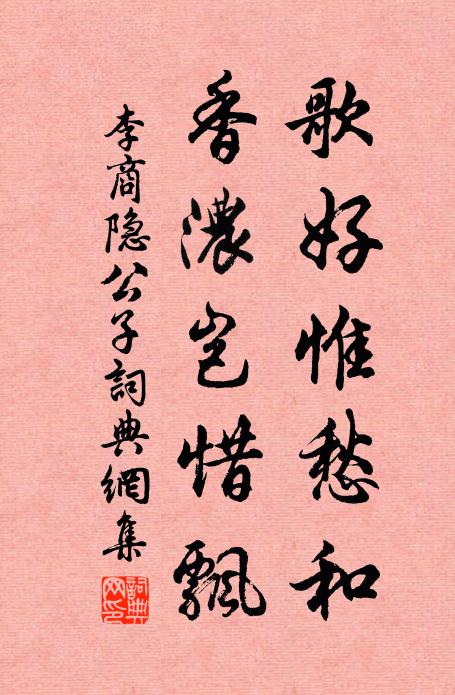 歌好惟愁和
香濃岂惜飄
李商隐公子詞典網集
詞典
网